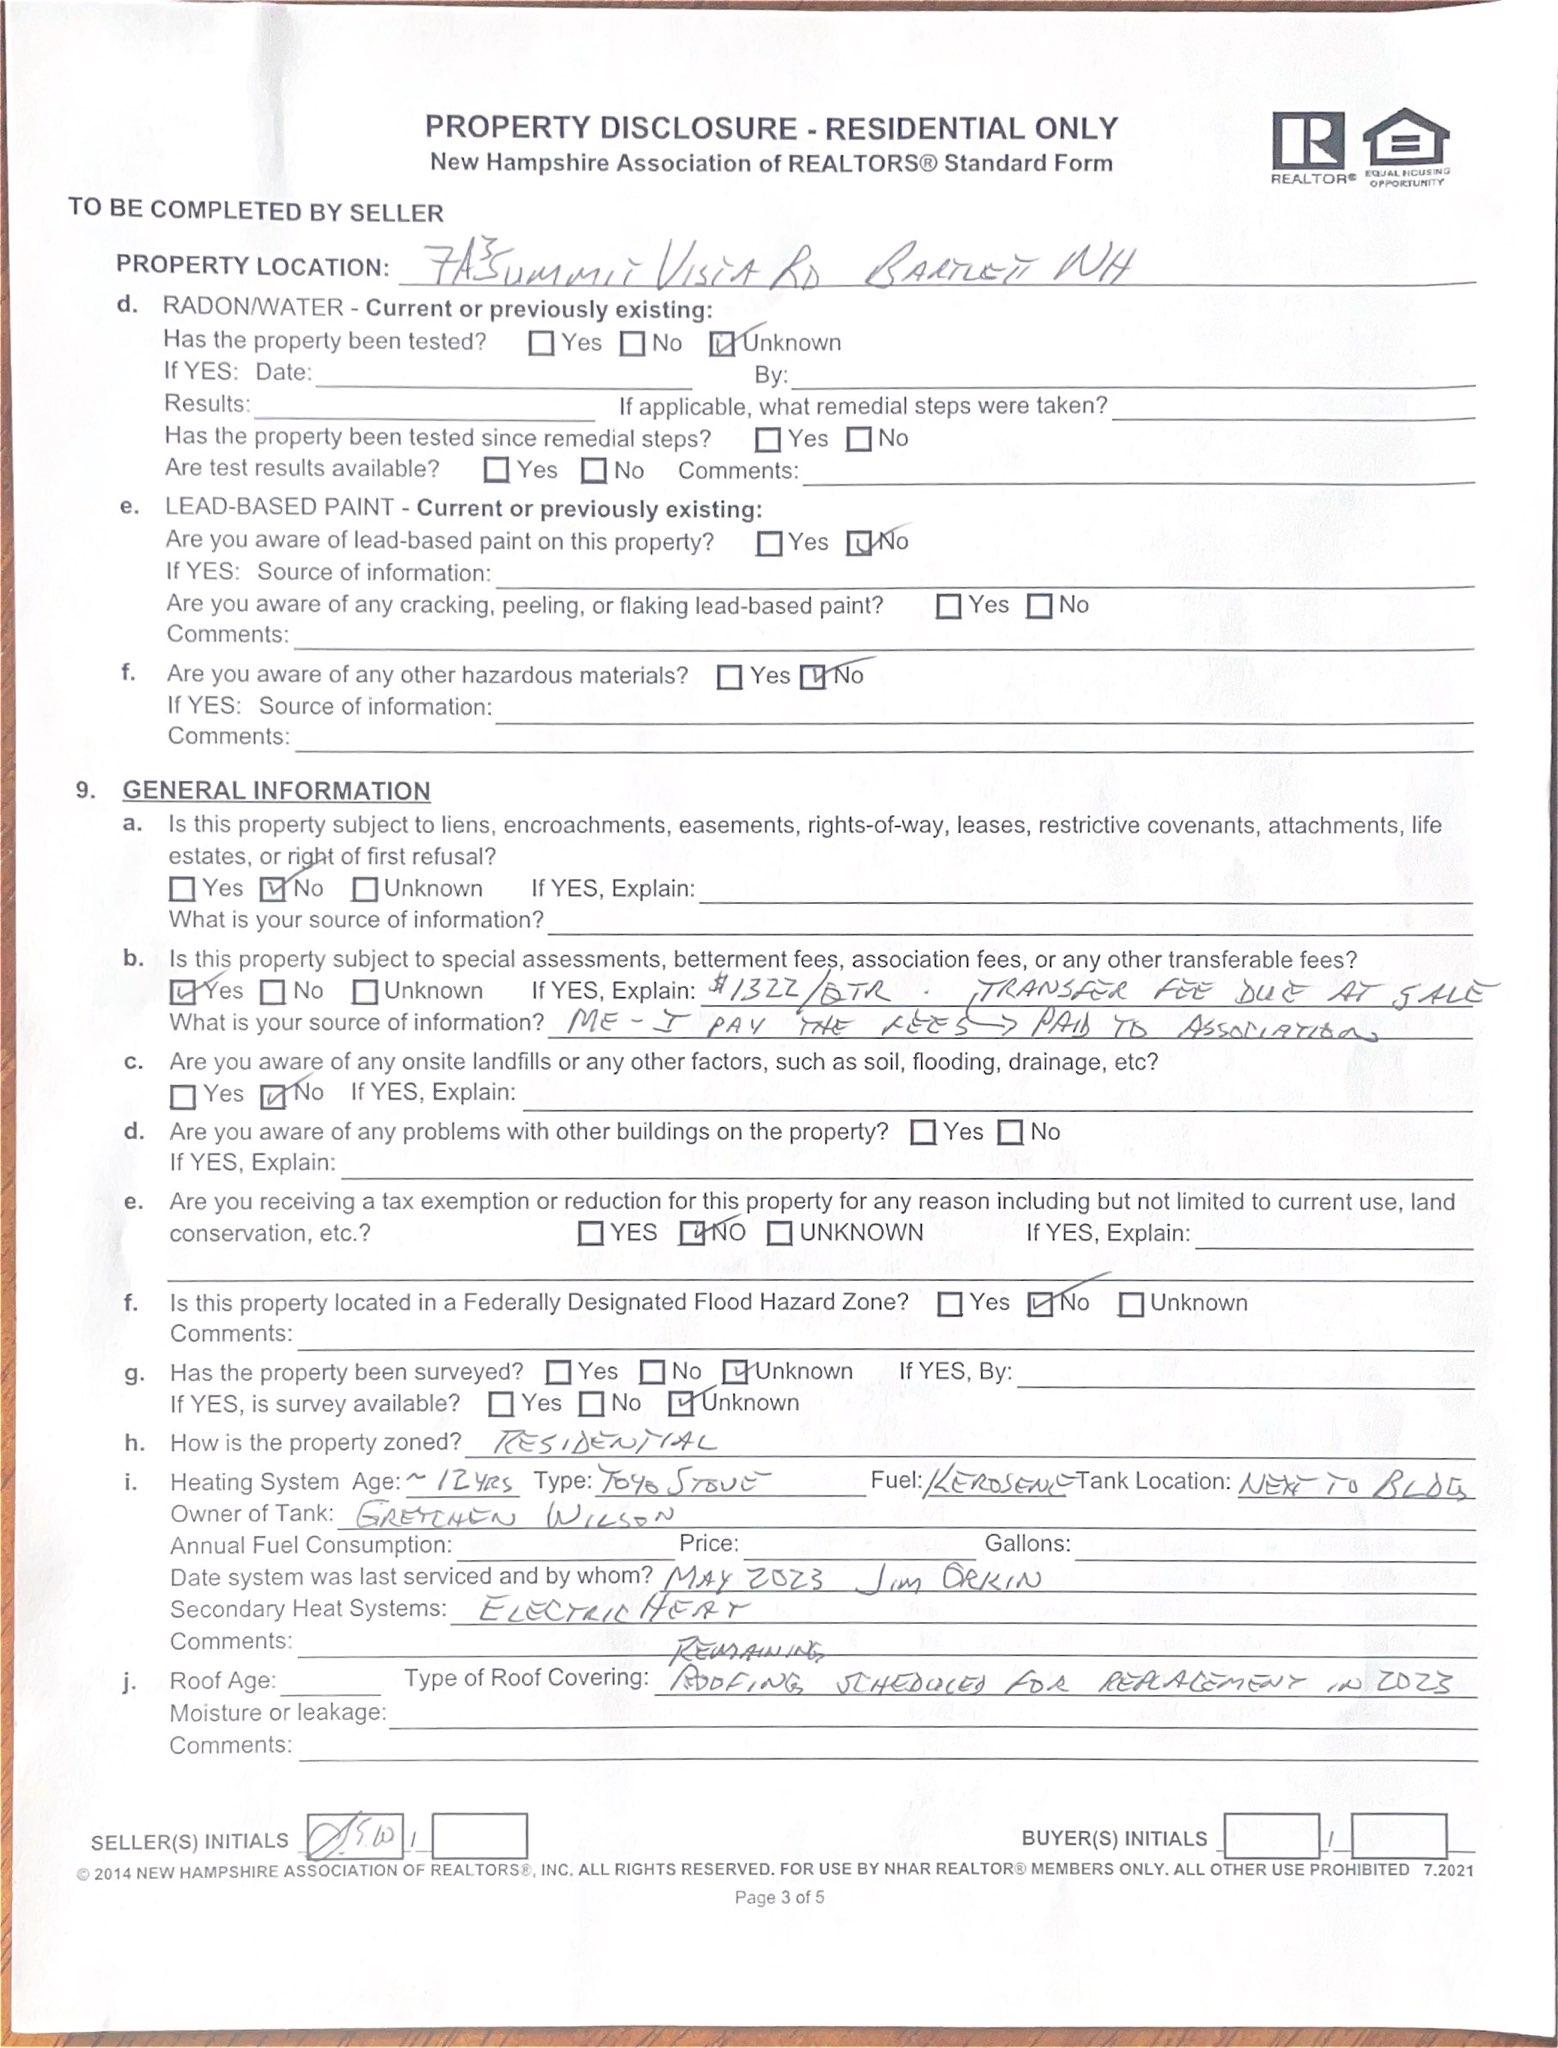 PROPERTY DISCLOSURE - RESIDENTIAL ONLY
New Hampshire Association of REALTORS® Standard Form
REALTOR®
EQUAL HOUSING
OPPORTUNITY
TO BE COMPLETED BY SELLER
PROPERTY LOCATION: 7A3 SUMMIT VISTA RD BARTLETT NH
d. RADON/WATER - Current or previously existing:
Has the property been tested? ☐ Yes ☐ No ☑ Unknown
If YES: Date: By:
Results: If applicable, what remedial steps were taken?
Has the property been tested since remedial steps? ☐ Yes ☐ No
Are test results available? ☐ Yes ☐ No Comments:
e. LEAD-BASED PAINT - Current or previously existing:
Are you aware of lead-based paint on this property? ☐ Yes ☑ No
If YES: Source of information:
Are you aware of any cracking, peeling, or flaking lead-based paint? ☐ Yes ☐ No
Comments:
f. Are you aware of any other hazardous materials? ☐ Yes ☑ No
If YES: Source of information:
Comments:
9. GENERAL INFORMATION
a. Is this property subject to liens, encroachments, easements, rights-of-way, leases, restrictive covenants, attachments, life
estates, or right of first refusal?
☐ Yes ☑ No ☐ Unknown If YES, Explain:
What is your source of information?
b. Is this property subject to special assessments, betterment fees, association fees, or any other transferable fees?
☑ Yes ☐ No ☐ Unknown If YES, Explain: $1322/QTR . TRANSFER FEE DUE AT SALE
What is your source of information? ME - I PAY THE FEES → PAID TO ASSOCIATION
c. Are you aware of any onsite landfills or any other factors, such as soil, flooding, drainage, etc?
☐ Yes ☑ No If YES, Explain:
d. Are you aware of any problems with other buildings on the property? ☐ Yes ☐ No
If YES, Explain:
e. Are you receiving a tax exemption or reduction for this property for any reason including but not limited to current use, land
conservation, etc.? ☐ YES ☑ NO ☐ UNKNOWN If YES, Explain:
f. Is this property located in a Federally Designated Flood Hazard Zone? ☐ Yes ☑ No ☐ Unknown
Comments:
g. Has the property been surveyed? ☐ Yes ☐ No ☑ Unknown If YES, By:
If YES, is survey available? ☐ Yes ☐ No ☑ Unknown
h. How is the property zoned? RESIDENTIAL
i. Heating System Age: ~ 12 YRS Type: TOYO STOVE Fuel: KEROSENE Tank Location: NEXT TO BLDG
Owner of Tank: GRETCHEN WILSON
Annual Fuel Consumption: Price: Gallons:
Date system was last serviced and by whom? MAY 2023 JIM ORKIN
Secondary Heat Systems: ELECTRIC HEAT
Comments:
REMAINING
j. Roof Age: Type of Roof Covering: ROOFING SCHEDULED FOR REPLACEMENT IN 2023
Moisture or leakage:
Comments:
SELLER(S) INITIALS /
BUYER(S) INITIALS /
© 2014 NEW HAMPSHIRE ASSOCIATION OF REALTORS®, INC. ALL RIGHTS RESERVED. FOR USE BY NHAR REALTOR® MEMBERS ONLY. ALL OTHER USE PROHIBITED 7.2021
Page 3 of 5